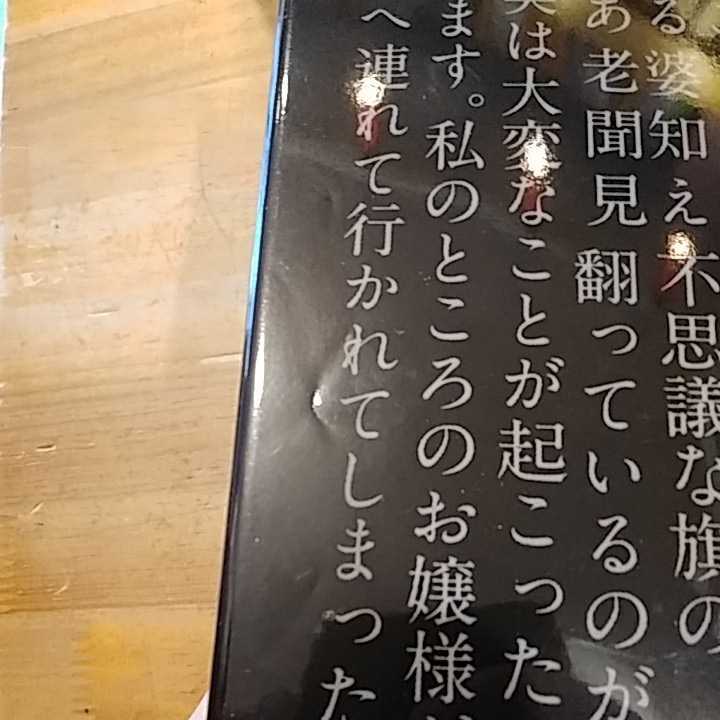 る婆知え 不思議な旗の
あ老聞見 翻っているのが
実は大変なことが起こった
ます。私のところのお嬢様が
へ連れて行かれてしまった